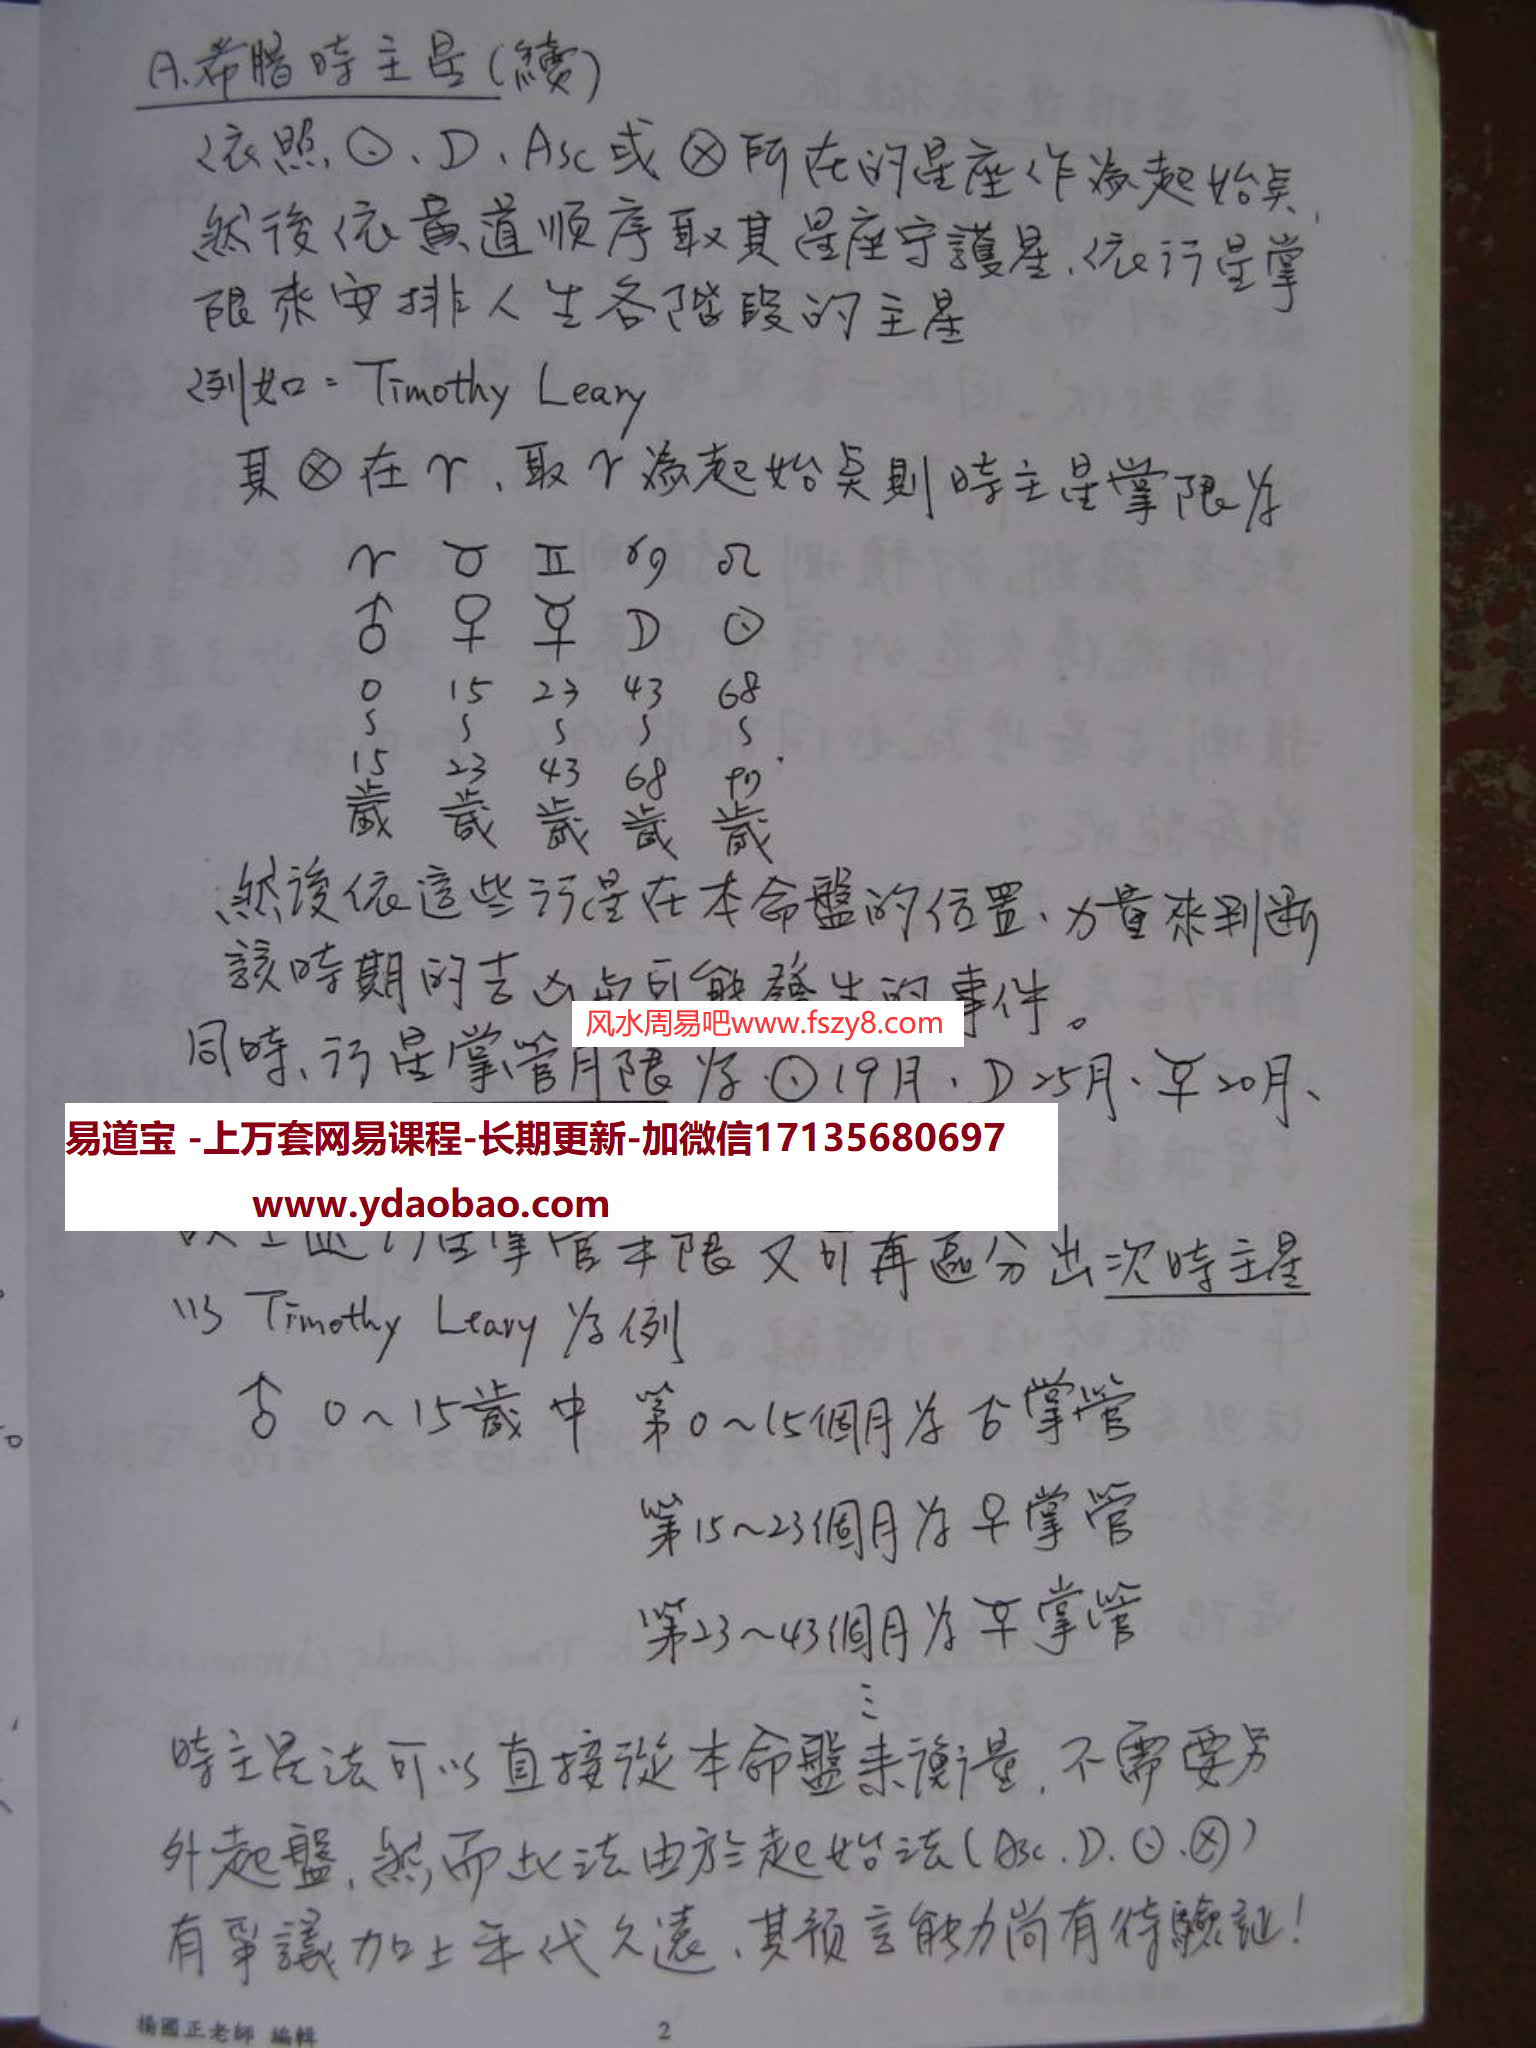 A.希腊時主星(續)
依照☉、☽、Asc或⊗所在的星座作為起始点,
然後依黃道順序取其星座守護星、依行星掌
限來安排人生各階段的主星
例如:Timothy Leary
其⊗在♈、取♈為起始点則時主星掌限为
♈ ♉ ♊ ♋ ♌
♂ ♀ ☿ ☽ ☉
0 15 23 43 68
~ ~ ~ ~ ~
15 23 43 68
歲 歲 歲 歲 歲
然後依這些行星在本命盤的位置、力量來判断
該時期的吉凶与可能發生的事件。
風水周易吧www.fszy8.com
同時、行星掌管月限为☉19月、☽25月、☿20月、
易道宝 -上万套网易课程-长期更新-加微信17135680697
www.ydaobao.com
行星掌管年限又可再區分出次時主星
以Timothy Leary为例
♂ 0~15歲中 第0~15個月为♂掌管
第15~23個月为♀掌管
第23~43個月为☿掌管
⋮
時主星法可以直接從本命盤來衡量,不需要另
外起盤,然而此法由於起始法(Asc.☽.☉.⊗)
有爭議加上年代久遠、其預言能力尚有待驗証!
楊國正老師 編輯
2